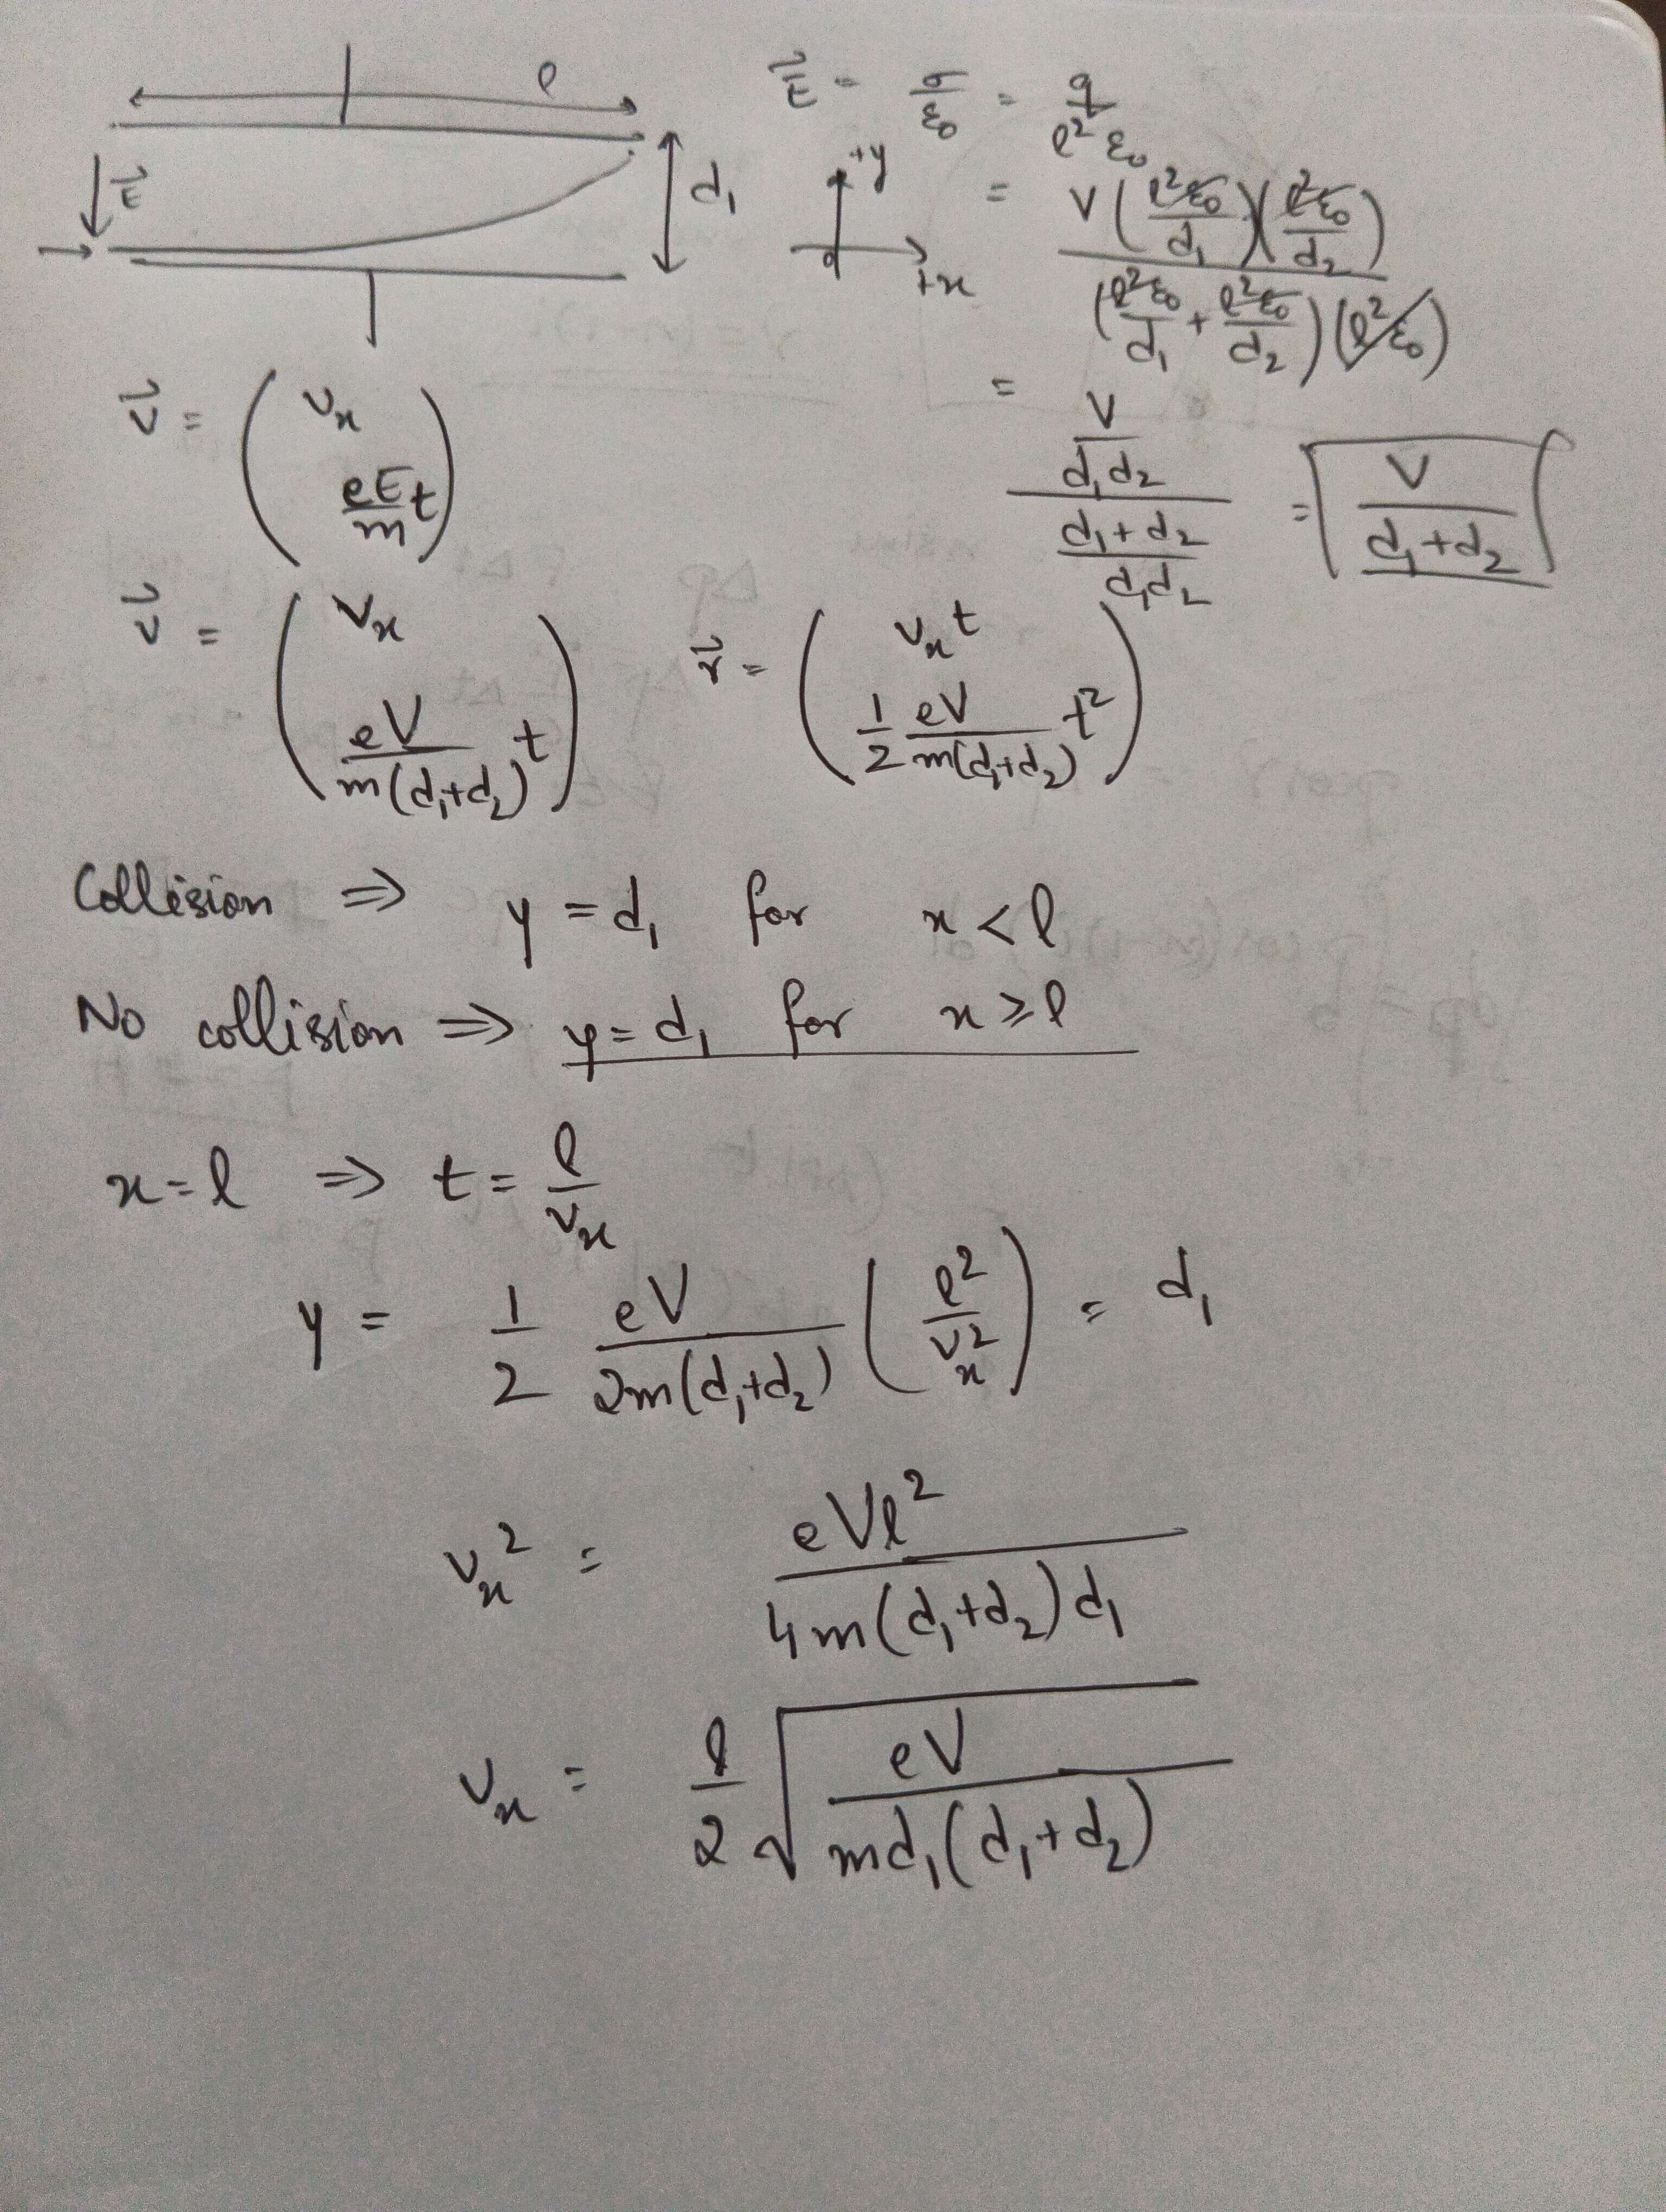 l
E⃗ = σ/ε₀ = q/l²ε₀
E⃗
d₁
+y
+x
= V(l²ε₀/d₁)(l²ε₀/d₂) / (l²ε₀/d₁ + l²ε₀/d₂)(l²ε₀)
v⃗ = (vₓ, eE/m t)
= V/d₁d₂ / d₁+d₂/d₁d₂ = V/d₁+d₂
v⃗ = (vₓ, eV/m(d₁+d₂) t) r⃗ = (vₓt, 1/2 eV/m(d₁+d₂) t²)
Collision ⇒ y = d₁ for x < l
No collision ⇒ y = d₁ for x ≥ l
x = l ⇒ t = l/vₓ
y = 1/2 eV/2m(d₁+d₂) (l²/vₓ²) = d₁
vₓ² = eVl²/4m(d₁+d₂)d₁
vₓ = l/2 √(eV/md₁(d₁+d₂))